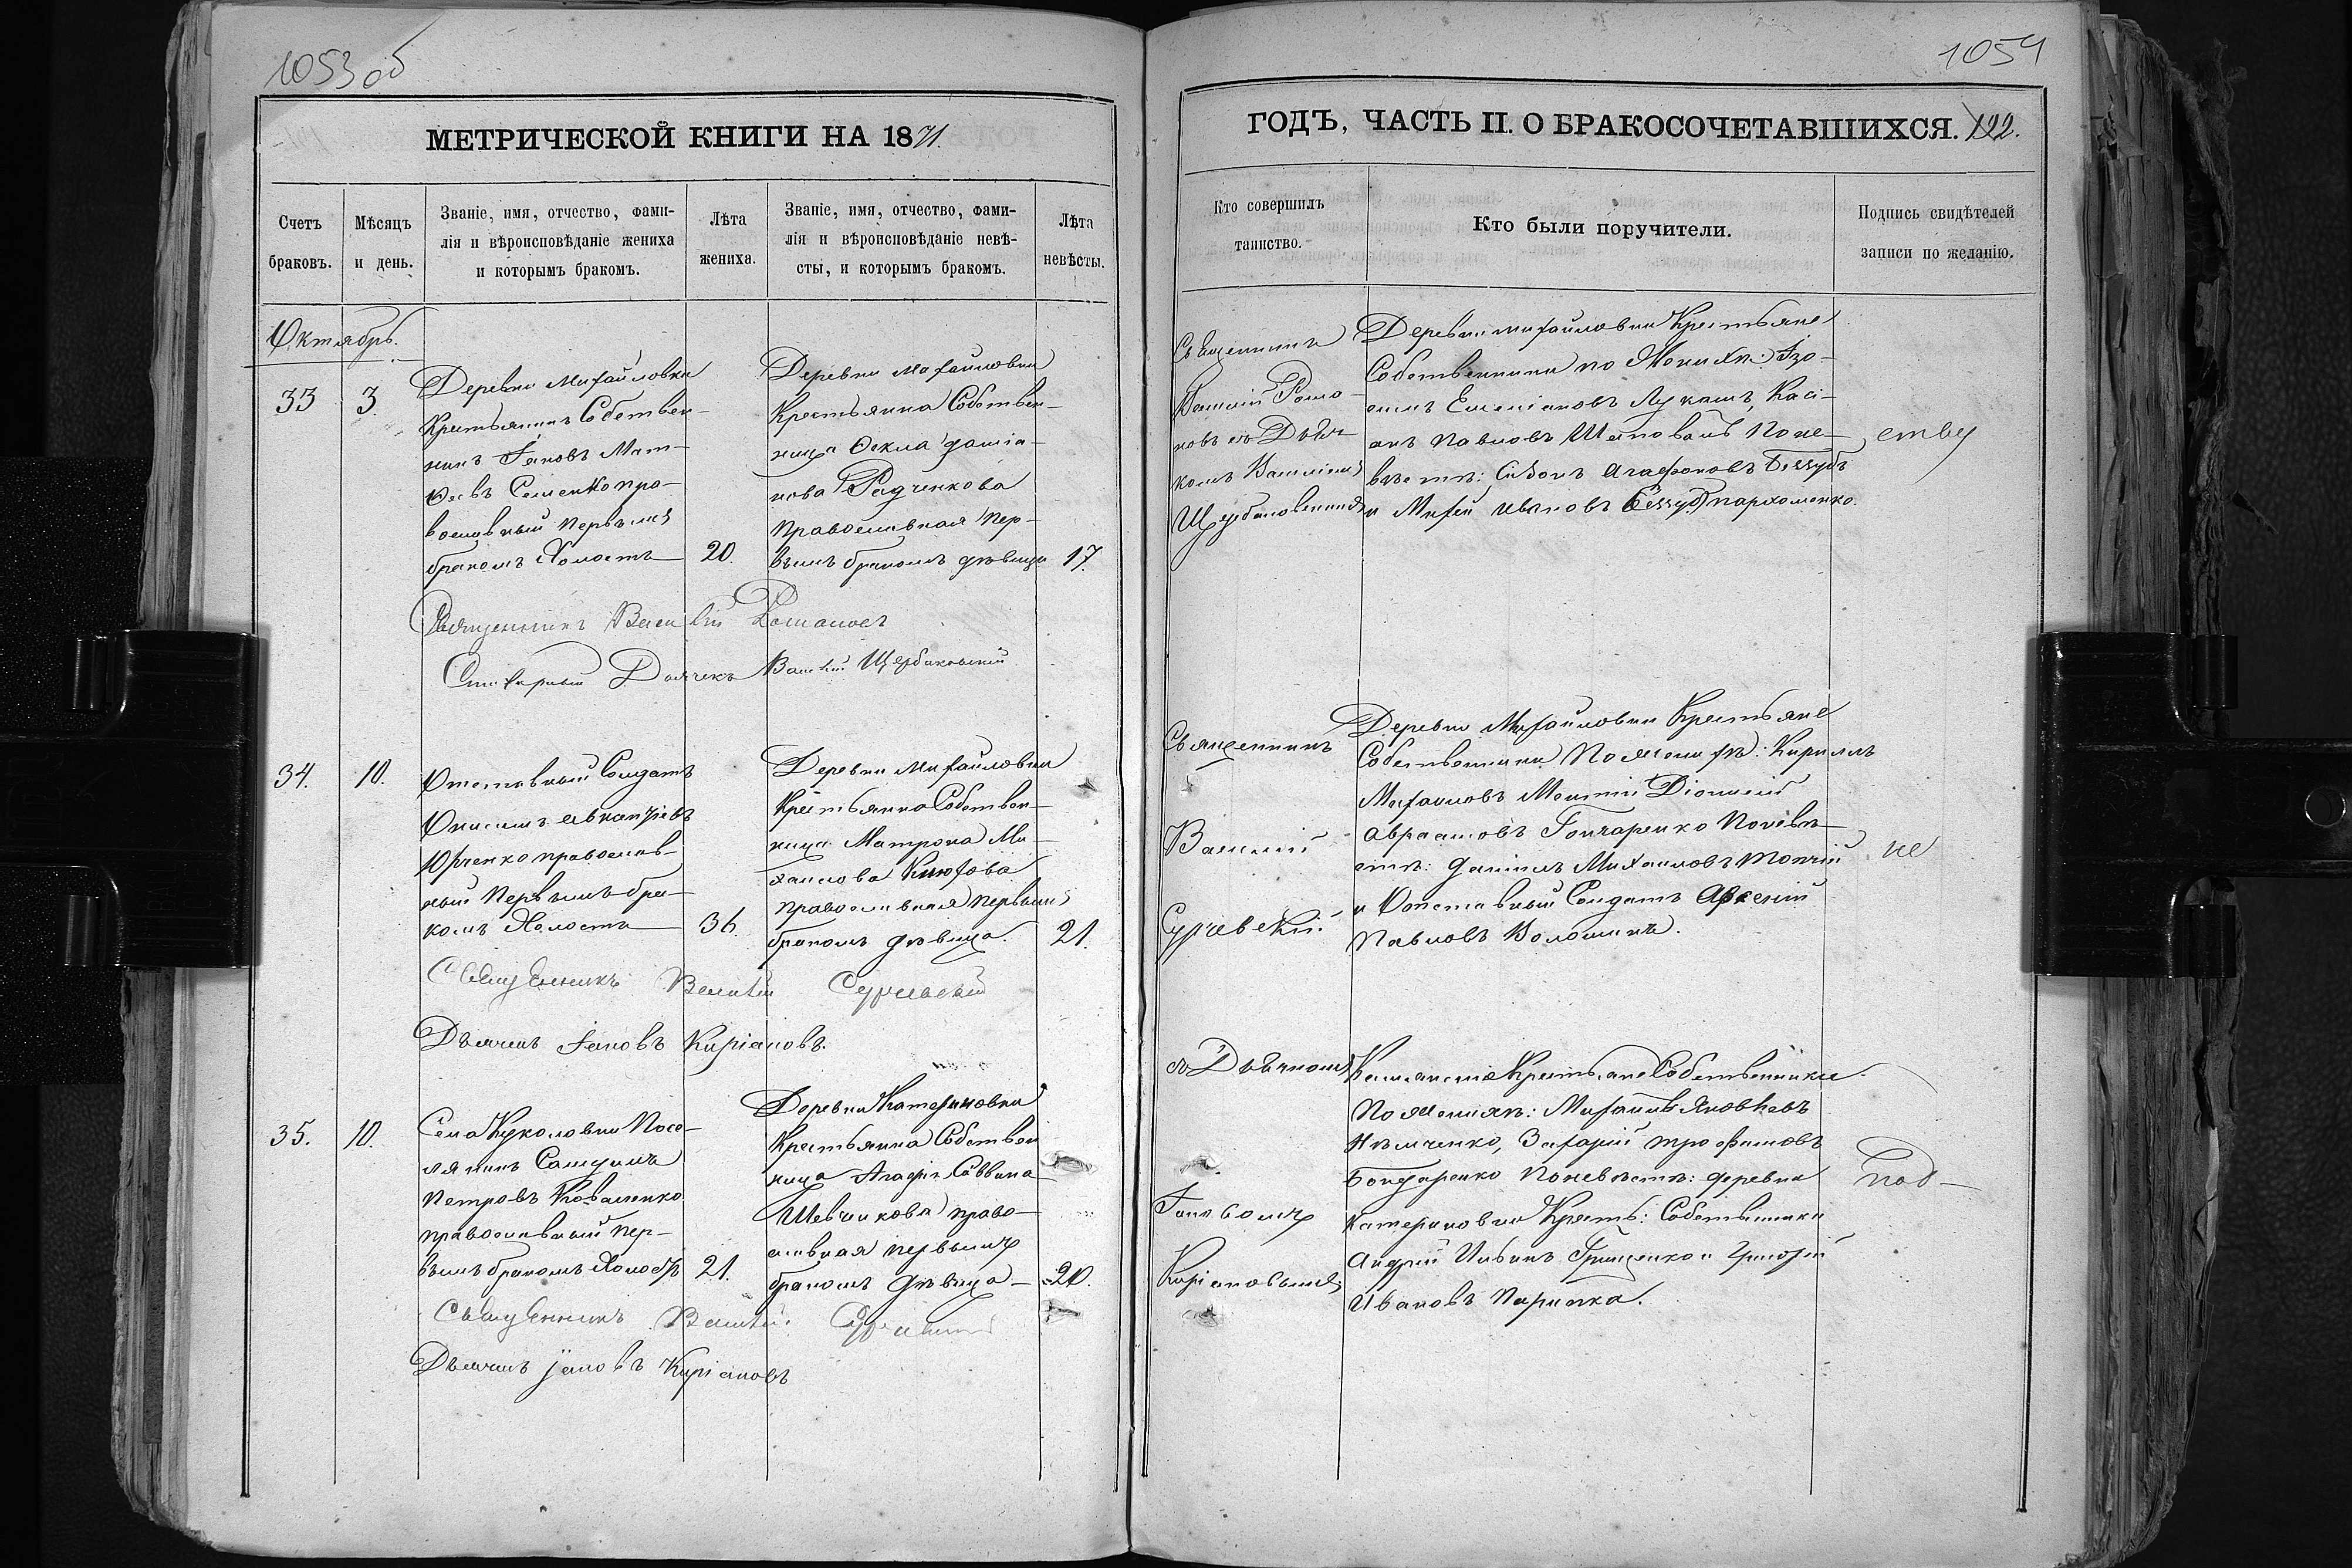 1053об
МЕТРИЧЕСКОЙ КНИГИ НА 1871.
Счетъ браковъ.
Мѣсяцъ и день.
Званіе, имя, отчество, фами-
лія и вѣроисповѣданіе жениха
и которымъ бракомъ.
Лѣта жениха.
Званіе, имя, отчество, фами-
лія и вѣроисповѣданіе невѣ-
сты, и которымъ бракомъ.
Лѣта невѣсты.
Октябрь.
33
3.
Деревни Михайловки
Крестьянинъ Собствен-
никъ Іаковъ Мат-
ѳеевъ Семенко пра-
вославный первымъ
бракомъ Холостъ
20.
Деревни Михайловки
Крестьянка Собствен-
ница Ѳекла Даміа-
нова Радченкова
Православная пер-
вымъ бракомъ дѣвица
17.
Священникъ Василій Романовъ
Дьячекъ Василій Щербаковскій
34.
10.
Отставный Солдатъ
Юрченко православ-
ный первымъ бра-
комъ Холостъ
36.
Деревни Михайловки
Крестьянка Собствен-
ница Матрона Ми-
хаилова
православная первымъ
бракомъ дѣвица.
21.
Священникъ Василій Сурчевскій
Дьячекъ Іаковъ Кирiаковъ.
35.
10.
Села Куколовки Посе-
лянинъ
Петровъ Коваленко
православный пер-
вымъ бракомъ Холостъ
21.
Деревни Катериновки
Крестьянка Собствен
ница Агафія Саввина
Шевчикова право-
славная первымъ
бракомъ дѣвица
20.
Священникъ Василій Сурчевскій
Дьячекъ Іаковъ Кирiаковъ
1054
ГОДЪ, ЧАСТЬ II. О БРАКОСОЧЕТАВШИХСЯ. 122.
Кто совершилъ таинство.
Кто были поручители.
Подпись свидѣтелей записи по желанію.
Священникъ
Василій Рома-
новъ съ Дьяч-
комъ Василіемъ
Щербаковскимъ
Деревни Михайловки Крестьяне
Собственники по Женихѣ: Iзо-
симъ Емеліановъ Лукашъ, Касі-
анъ Павловъ Шаповалъ По не-
вѣстѣ: Агафоновъ Беззубъ
и Михей Ивановъ Беззубъ Пархоменко.
ству
Священникъ
Василій
Сурчевскій
Деревни Михайловки Крестьяне
Собственники По женихѣ: Кириллъ
Михаиловъ Діонисій
Авраамовъ Гончаренко По невѣ-
стѣ: Даніилъ Михаиловъ
и Отставный Солдатъ Арсеній
Павловъ Волошинъ.
не
съ Дьячкомъ
Іаковомъ
Кирiаковымъ
Крестьяне Собственники
По женихѣ: Михаилъ Яковлевъ
Нѣмченко, Захарій Трофимовъ
Бондаренко По невѣстѣ: деревни
Катериновки Кресть: Собственники
Андрей Ильинъ Грищенко и Григорій
Ивановъ
под-